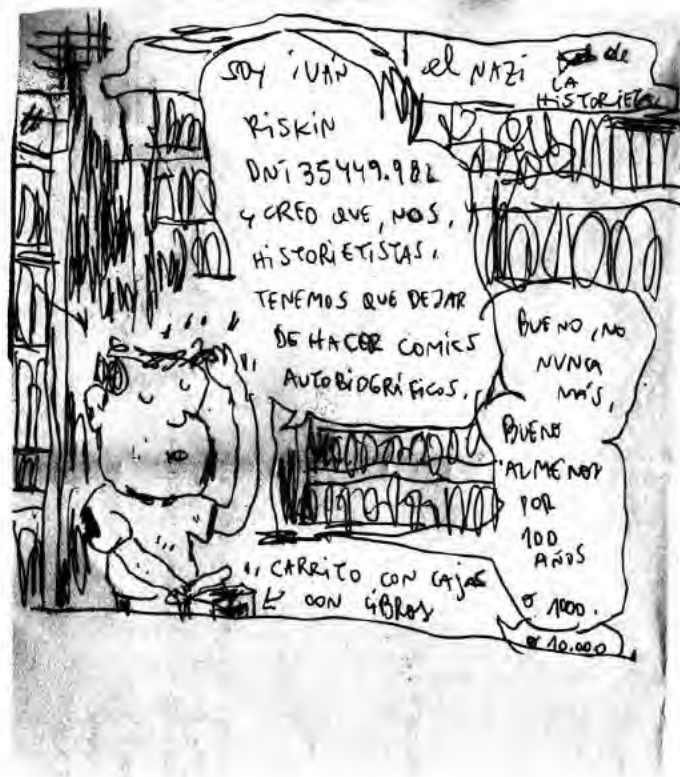 el NAZI de
LA
HISTORIETA
SOY IVÁN
RISKIN
DNI 35449.982
Y CREO QUE, NOS,
HISTORIETISTAS,
TENEMOS QUE DEJAR
DE HACER COMICS
AUTOBIOGRÁFICOS,
BUENO, NO
NUNCA
MÁS,
BUENO
ALMENOS
POR
100
AÑOS
O 1000.
O 10.000
CARRITO CON CAJAS
CON LIBROS